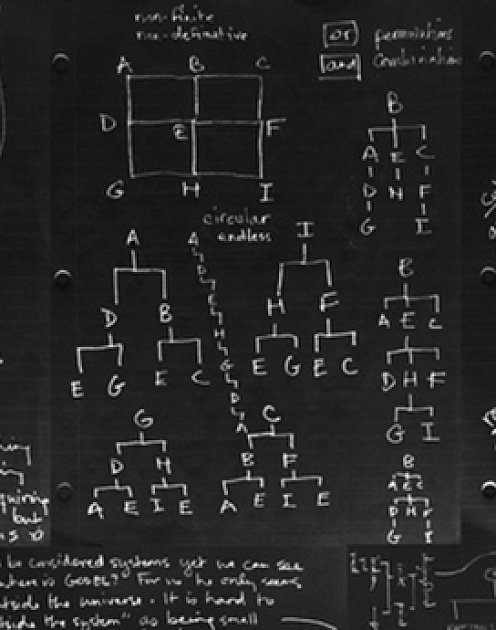 non-finite
non-definitive
or permutations
and combinations
A B C
D E F
G H I
B
A E C
D H F
G I
circular
endless
A
D B
E G E C
A
D
E
H
G
D
A
I
H F
E G E C
B
A E C
D H F
G I
G
D H
A E I E
C
B F
A E I E
B
A E C
D H F
G I
but
be considered systems yet we can see
where is GODEL? For no he only seems
outside the universe. It is hard to
outside the system" as being small